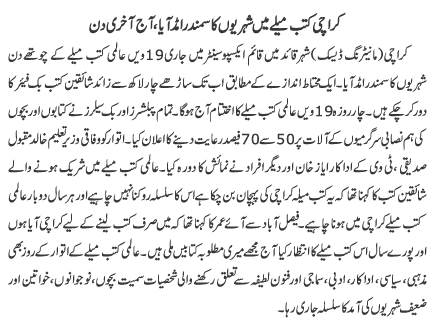 کراچی کتب میلے میں شہریوں کا سمندر امڈ آیا، آج آخری دن
کراچی (مانیٹرنگ ڈیسک) شہر قائد میں قائم ایکسپو سینٹر میں جاری 19 ویں عالمی کتب میلے کے چوتھے دن
شہریوں کا سمندر امڈ آیا۔ ایک محتاط اندازے کے مطابق اب تک ساڑھے چار لاکھ سے زائد شائقین کتب بک فیئر کا
دورہ کر چکے ہیں۔ چار روزہ 19 ویں عالمی کتب میلے کا اختتام آج ہوگا۔ تمام پبلشرز اور بک سیلرز نے کتابوں اور بچوں
کی ہم نصابی سرگرمیوں کے آلات پر 50 سے 70 فیصد رعایت دینے کا اعلان کیا۔ اتوار کو وفاقی وزیر تعلیم خالد مقبول
صدیقی، ٹی وی کے اداکار ایاز خان اور دیگر افراد نے نمائش کا دورہ کیا۔ عالمی کتب میلے میں شریک ہونے والے
شائقین کتب کا کہنا تھا کہ یہ کتب میلہ کراچی کی پہچان بن چکا ہے اس کا سلسلہ روکنا نہیں چاہیے اور ہر سال دو بار عالمی
کتب میلے کراچی میں ہونا چاہیے۔ فیصل آباد سے آئے عمر کا کہنا تھا کہ میں صرف کتب لینے کے لیے کراچی آیا ہوں
اور پورے سال اس کتب میلے کا انتظار کیا آج مجھے میری مطلوبہ کتابیں ملی ہیں۔ عالمی کتب میلے کے اتوار کے روز بھی
مذہبی، سیاسی، اداکار، ادبی، سماجی اور فنون لطیفہ سے تعلق رکھنے والی شخصیات سمیت بچوں، نوجوانوں، خواتین اور
ضعیف شہریوں کی آمد کا سلسلہ جاری رہا۔